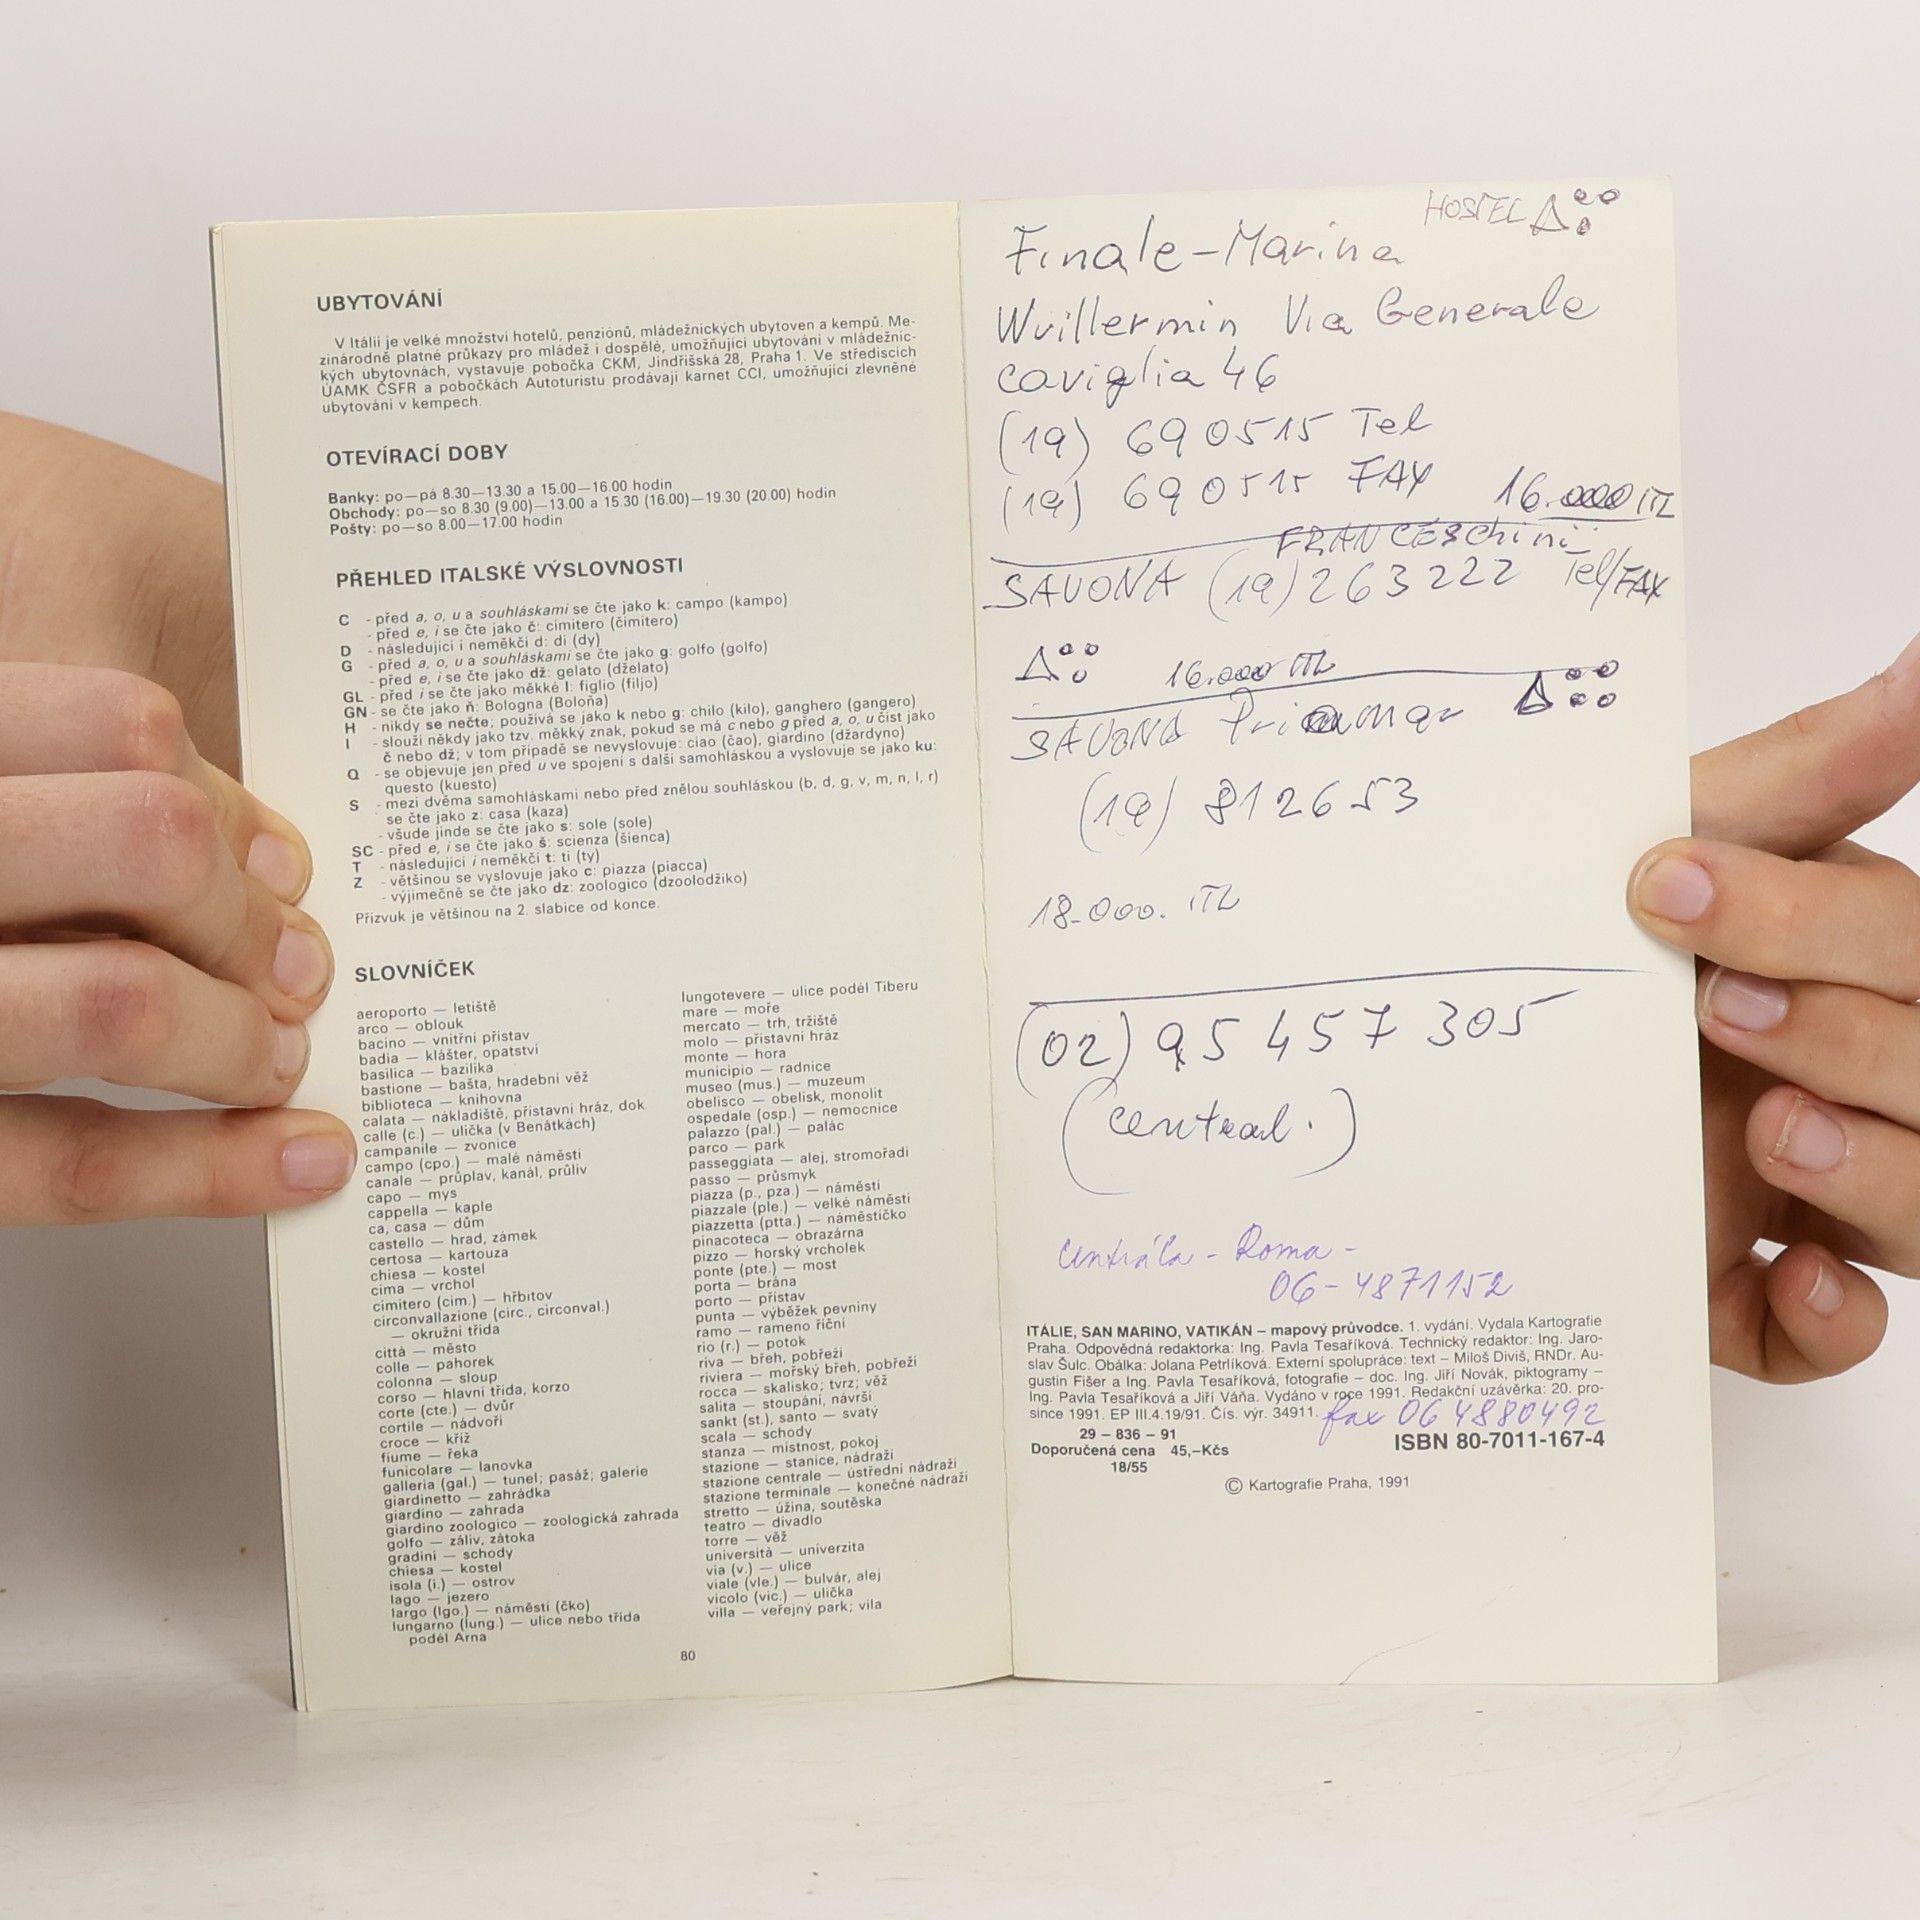 UBYTOVÁNÍ
V Itálii je velké množství hotelů, penziónů, mládežnických ubytoven a kempů. Me-
zinárodně platné průkazy pro mládež i dospělé, umožňující ubytování v mládežnic-
kých ubytovnách, vystavuje pobočka CKM, Jindřišská 28, Praha 1. Ve střediscích
ÚAMK ČSFR a pobočkách Autoturistu prodávají karnet CCI, umožňující zlevněné
ubytování v kempech.
OTEVÍRACÍ DOBY
Banky: po—pá 8.30—13.30 a 15.00—16.00 hodin
Obchody: po—so 8.30 (9.00)—13.00 a 15.30 (16.00)—19.30 (20.00) hodin
Pošty: po—so 8.00—17.00 hodin
PŘEHLED ITALSKÉ VÝSLOVNOSTI
C - před a, o, u a souhláskami se čte jako k: campo (kampo)
- před e, i se čte jako č: cimitero (čimitero)
D - následující i neměkčí d: di (dy)
G - před a, o, u a souhláskami se čte jako g: golfo (golfo)
- před e, i se čte jako dž: gelato (dželato)
GL - před i se čte jako měkké l: figlio (filjo)
GN - se čte jako ň: Bologna (Boloňa)
H - nikdy se nečte; používá se jako k nebo g: chilo (kilo), ganghero (gangero)
I - slouží někdy jako tzv. měkký znak, pokud se má c nebo g před a, o, u číst jako
č nebo dž; v tom případě se nevyslovuje: ciao (čao), giardino (džardyno)
Q - se objevuje jen před u ve spojení s další samohláskou a vyslovuje se jako ku:
questo (kuesto)
S - mezi dvěma samohláskami nebo před znělou souhláskou (b, d, g, v, m, n, l, r)
se čte jako z: casa (kaza)
- všude jinde se čte jako s: sole (sole)
SC - před e, i se čte jako š: scienza (šienca)
T - následující i neměkčí t: ti (ty)
Z - většinou se vyslovuje jako c: piazza (piacca)
- výjimečně se čte jako dz: zoologico (dzoolodžiko)
Přízvuk je většinou na 2. slabice od konce.
SLOVNÍČEK
aeroporto — letiště
arco — oblouk
bacino — vnitřní přístav
badia — klášter, opatství
basilica — bazilika
bastione — bašta, hradební věž
biblioteca — knihovna
calata — nákladiště, přístavní hráz, dok
calle (c.) — ulička (v Benátkách)
campanile — zvonice
campo (cpo.) — malé náměstí
canale — průplav, kanál, průliv
capo — mys
cappella — kaple
ca, casa — dům
castello — hrad, zámek
certosa — kartouza
chiesa — kostel
cima — vrchol
cimitero (cim.) — hřbitov
circonvallazione (circ., circonval.)
— okružní třída
città — město
colle — pahorek
colonna — sloup
corso — hlavní třída, korzo
corte (cte.) — dvůr
cortile — nádvoří
croce — kříž
fiume — řeka
funicolare — lanovka
galleria (gal.) — tunel; pasáž; galerie
giardinetto — zahrádka
giardino — zahrada
giardino zoologico — zoologická zahrada
golfo — záliv, zátoka
gradini — schody
chiesa — kostel
isola (i.) — ostrov
lago — jezero
largo (lgo.) — náměstí (čko)
lungarno (lung.) — ulice nebo třída
podél Arna
lungotevere — ulice podél Tiberu
mare — moře
mercato — trh, tržiště
molo — přístavní hráz
monte — hora
municipio — radnice
museo (mus.) — muzeum
obelisco — obelisk, monolit
ospedale (osp.) — nemocnice
palazzo (pal.) — palác
parco — park
passeggiata — alej, stromořadí
passo — průsmyk
piazza (p., pza.) — náměstí
piazzale (ple.) — velké náměstí
piazzetta (ptta.) — náměstíčko
pinacoteca — obrazárna
pizzo — horský vrcholek
ponte (pte.) — most
porta — brána
porto — přístav
punta — výběžek pevniny
ramo — rameno říční
rio (r.) — potok
riva — břeh, pobřeží
riviera — mořský břeh, pobřeží
rocca — skalisko; tvrz; věž
salita — stoupání, návrší
sankt (st.), santo — svatý
scala — schody
stanza — místnost, pokoj
stazione — stanice, nádraží
stazione centrale — ústřední nádraží
stazione terminale — konečné nádraží
stretto — úžina, soutěska
teatro — divadlo
torre — věž
università — univerzita
via (v.) — ulice
viale (vle.) — bulvár, alej
vicolo (vic.) — ulička
villa — veřejný park; vila
80
HOSTEL
Finale-Marina
Wuillermin Via Generale
Caviglia 46
(19) 690515 Tel
(19) 690515 FAX
16.000 ITL
FRANCESChini
SAVONA (19) 263222 Tel/FAX
16.000 ITL
SAVONA Priamar
(19) 812653
18.000. ITL
(02) 95 457 305
(central.)
Centrála - Roma -
06-4871152
ITÁLIE, SAN MARINO, VATIKÁN – mapový průvodce. 1. vydání. Vydala Kartografie
Praha. Odpovědná redaktorka: Ing. Pavla Tesaříková. Technický redaktor: Ing. Jaro-
slav Šulc. Obálka: Jolana Petrlíková. Externí spolupráce: text – Miloš Diviš, RNDr. Au-
gustin Fišer a Ing. Pavla Tesaříková, fotografie – doc. Ing. Jiří Novák, piktogramy –
Ing. Pavla Tesaříková a Jiří Váňa. Vydáno v roce 1991. Redakční uzávěrka: 20. pro-
since 1991. EP III.4.19/91. Čís. výr. 34911.
fax 06 4880492
29 – 836 – 91
Doporučená cena 45,–Kčs
18/55
ISBN 80-7011-167-4
© Kartografie Praha, 1991